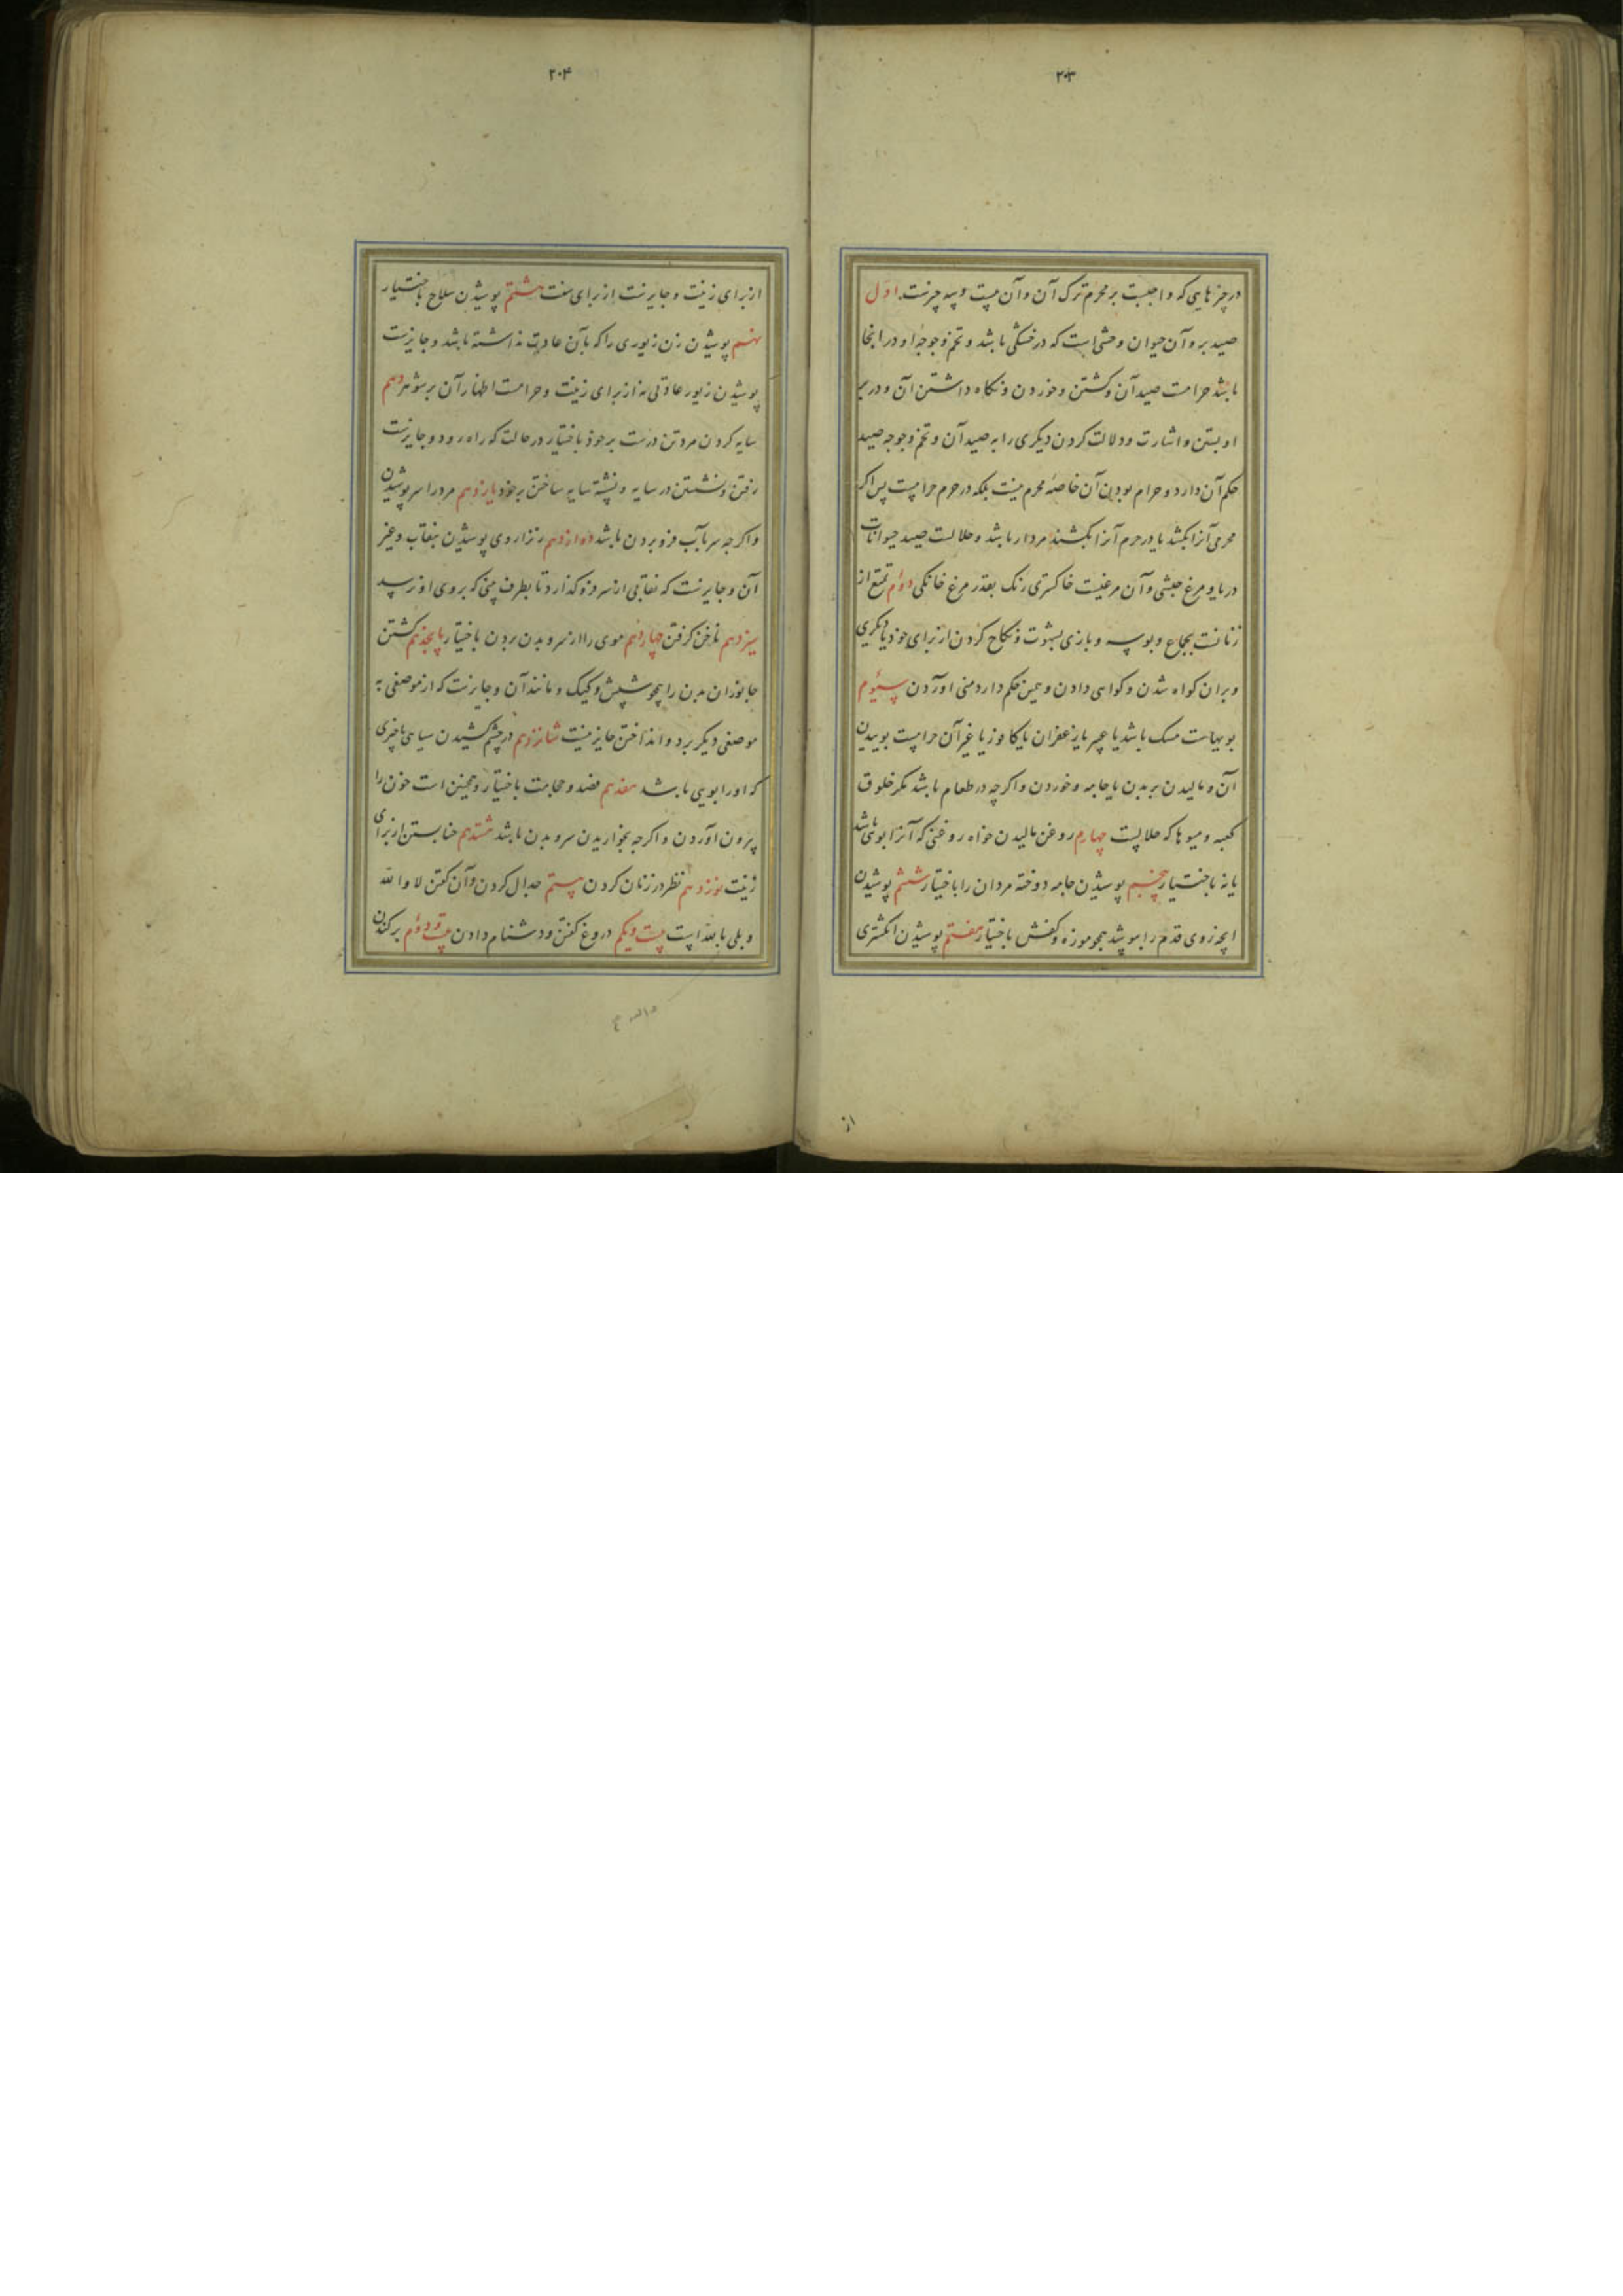 ۲۰۳
در چیزهایی که واجبست بر محرم ترک آن و آن بیست و سه چیزست اول
صید بر و آن حیوان وحشی است که در خشکی باشد و تخم و جوجه او در انجا
باشد حرامست صید آن و کشتن و خوردن و نکاه داشتن آن و در بر
او بستن و اشارت و دلالت کردن دیکری را به صید آن و تخم و جوجه صید
حکم آن دارد و حرام بودن آن خاصه محرم نیست بلکه در حرم حرامست پس اکر
محرمی آنرا بکشد یا در حرم آنرا بکشند مردار باشد و حلالست صید حیوانات
دریا و مرغ حبشی و آن مرغیست خاکستری رنک بقدر مرغ خانکی دوم تمتع از
زنانست بجماع و بوسه و بازی بشهوت و نکاح کردن از برای خود یا دیکری
و بران کواه شدن و کواهی دادن و همین حکم دارد منی اوردن سیوم
بویهاست مسک باشد یا عبیر یا زعفران یا کافور یا غیر آن حرامست بوییدن
آن و مالیدن بر بدن یا جامه و خوردن و اکرچه در طعام باشد مکر خلوق
کعبه و میوها که حلالست چهارم روغن مالیدن خواه روغنی که آنرا بوی باشد
یا نه باختیار پنجم پوشیدن جامه دوخته مردان را باختیار ششم پوشیدن
انچه روی قدم را بپوشد همچو موزه و کفش باختیار هفتم پوشیدن انکشتری
از
۲۰۴
از برای زینت و جایزست از برای سنت هشتم پوشیدن سلاح باختیار
نهم پوشیدن زن زیوری را که بآن عادت نداشته باشد و جایزست
پوشیدن زیور عادتی نه از برای زینت و حرامست اظهار آن بر شوهر دهم
سایه کردن مرد تن درست بر خود باختیار در حالت که راه رود و جایزست
رفتن و نشستن در سایه و نشسته سایه ساختن بر خود یازدهم مرد را سر پوشیدن
و اکرچه سر بآب فرو بردن باشد دوازدهم زنرا روی پوشیدن بنقاب و غیر
آن و جایزست که نقابی از سر فرو کذارد تا بطرف بینی که بروی او نرسد
سیزدهم ناخن کرفتن چهاردهم موی را از سر و بدن بردن باختیار پانجدهم کشتن
جانوران بدن را همچو شپش و کیک و مانند آن و جایزست که از موضعی به
موضعی دیکر برد و انداختن جایز نیست شانزدهم در چشم کشیدن سیاهی یا چیزی
که او را بویی باشد هفدهم فصد و حجامت باختیار و همچنین است خون را
بیرون اوردن و اکرچه بخواریدن سر و بدن باشد هشتدهم حنا بستن از برای
زینت نوزدهم نظر در زنان کردن بیستم جدال کردن و آن کفتن لا والله
و بلی بالله است بیست و یکم دروغ کفتن و دشنام دادن بیست و دوم برکندن